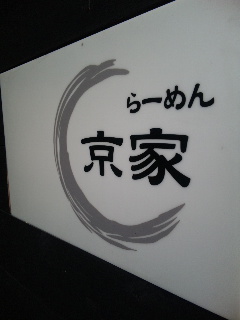 らーめん
京家